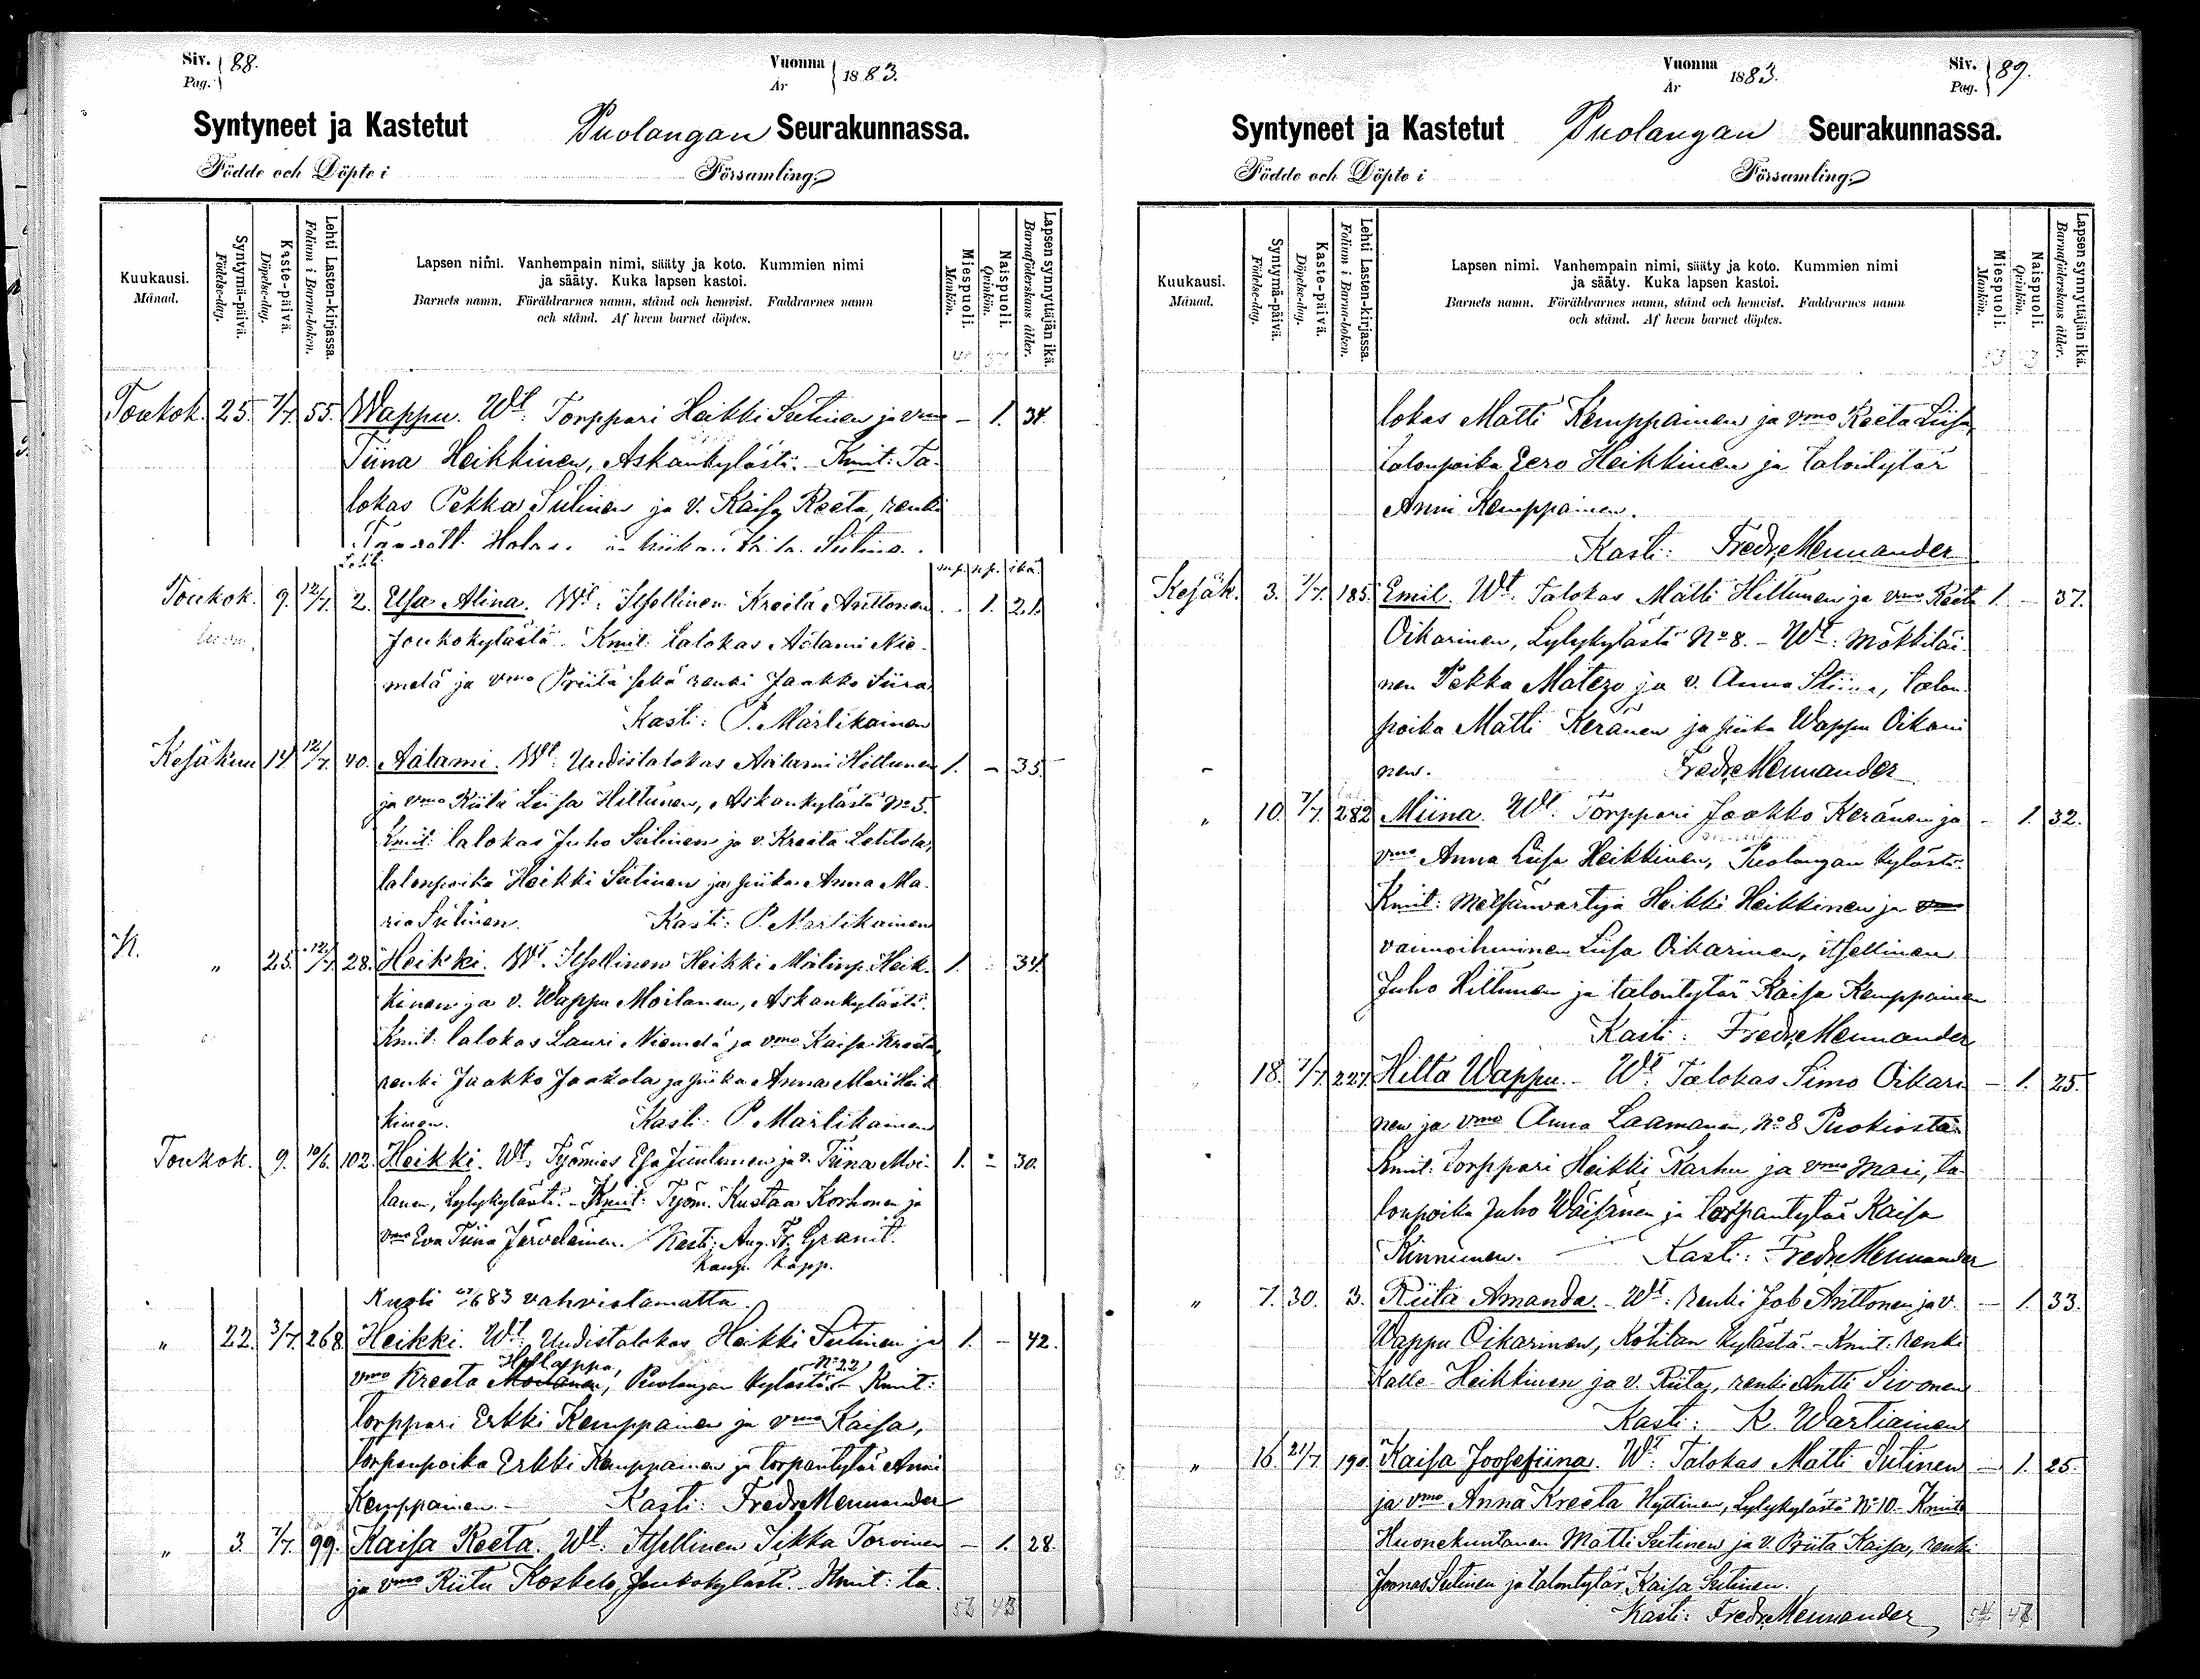 Siv. 88.
Pag.
Vuonna 1883.
År
Syntyneet ja Kastetut Puolangan Seurakunnassa.
Födde och Döpte i Församling.
Kuukausi.
Månad.
Syntymä-päivä.
Födelse-dag.
Kaste-päivä.
Döpelse-dag.
Lehti Lasten-kirjassa.
Folium i Barna-boken.
Lapsen nimi. Vanhempain nimi, sääty ja koto. Kummien nimi
ja sääty. Kuka lapsen kastoi.
Barnets namn. Föräldrarnes namn, stånd och hemvist. Faddrarnes namn
och stånd. Af hvem barnet döptes.
Miespuoli.
Mankön.
Naispuoli.
Qvinkön.
Lapsen synnyttäjän ikä.
Barnaföderskans ålder.
Toukok. 25. 7/7. 55. Wappu. Wt. Torppari Heikki Seitinen ja vmo — 1. 34.
Tiina Heikkinen, Askankylästä. Kmit: Ta-
lokas Pekka ja v. Kaisa Reeta, renki
mp. np. ikä.
Toukok. 9. 12/7. 2. Elsa Alina. Wt: Itsellinen Kreeta Anttonen 1. 21.
Joukokylästä. Kmit: talokas Aatami Nie-
melä ja vmo Priita sekä renki Jaakko Siira
Kasti: P. Martikainen
Kesäkuu 14. 12/7. 40. Aatami. Wt. Uudistalokas Aatami Hiltunen 1. — 35.
ja vmo Riita Liisa Hiltunen, Askankylästä No 5.
Kmit: talokas Juho Seitinen ja v. Kreeta Lehtola,
talonpoika Heikki Seitinen ja piika Anna Ma-
ria Seitinen. Kasti: P. Martikainen
K. „ 25. 12/7. 28. Heikki. Wt. Itsellinen Heikki Matinp. Heik- 1. 34.
kinen ja v. Wappu Moilanen, Askankylästä.
Kmit: talokas Lauri Niemelä ja vmo Kaisa Kreeta,
renki Jaakko Jaakola ja piika Anna Mari Heik
kinen. Kasti: P. Martikainen
Toukok. 9. 10/6. 102. Heikki. Wt. Työmies Esa Juntunen ja v. Tiina Moi- 1. - 30.
lanen, Lylykylästä. - Kmit: Työm. Kustaa Korhonen ja
vmo Eva Tiina Järveläinen. Kasti: Aug. Fr. Granit.
Kamp. Kapp.
Kuoli /6 83 vahvistamatta.
„ 22. 3/7. 268 Heikki. Wt. Uudistalokas Heikki Seitinen ja 1. — 42.
Holappa, No 22
vmo Kreeta Moilanen, Puolangan kylästä. - Kmit:
torppari Erkki Kemppainen ja vmo Kaisa,
torpanpoika Erkki Kemppainen ja torpantytär Anni
Kemppainen. — Kasti: Fredr. Mennander
„ 3. 7/7. 99. Kaisa Reeta. Wt. Itsellinen Torvinen — 1. 28.
ja vmo Riitu Koskelo, Joukokylästä. Kmit: ta-
53 43
Vuonna 1883.
År
Siv. 89.
Pag.
Syntyneet ja Kastetut Puolangan Seurakunnassa.
Födde och Döpte i Församling.
Kuukausi.
Månad.
Syntymä-päivä.
Födelse-dag.
Kaste-päivä.
Döpelse-dag.
Lehti Lasten-kirjassa.
Folium i Barna-boken.
Lapsen nimi. Vanhempain nimi, sääty ja koto. Kummien nimi
ja sääty. Kuka lapsen kastoi.
Barnets namn. Föräldrarnes namn, stånd och hemvist. Faddrarnes namn
och stånd. Af hvem barnet döptes.
Miespuoli.
Mankön.
Naispuoli.
Qvinkön.
Lapsen synnyttäjän ikä.
Barnaföderskans ålder.
53 43
lokas Matti Kemppainen ja vmo Reeta Liisa,
talonpoika Eero Heikkinen ja talontytär
Anni Kemppainen.
Kasti: Fredr. Mennander
Kesäk. 3. 7/7. 185. Emil. Wt. Talokas Matti Hiltunen ja vmo Reeta 1. — 37.
Oikarinen, Lylykylästä No 8. - Wt: Mökkiläi-
nen Pekka Matero ja v. Anna Stiina, talon-
poika Matti Keränen ja piika Wappu Oikari
nen. Fredr. Mennander
„ 10. 7/7. 282 Miina. Wt. Torppari Jaakko Keränen ja — 1. 32.
vmo Anna Liisa Heikkinen, Puolangan kylästä.
Kmit: Metsänvartija Heikki Heikkinen ja vmo
vaimoihminen Liisa Oikarinen, itsellinen
Juho Hiltunen ja talontytär Kaisa Kemppainen
Kasti: Fredr. Mennander
18. 7/7. 227. Hilta Wappu. - Wt. Talokas Simo Oikari — 1. 25.
nen ja vmo Anna Laamanen, No 8 Puokiosta
Kmit: torppari Heikki Karhu ja vmo Mari, ta-
lonpoika Juho Wäisänen ja torpantytär Kaisa
Kinnunen. — Kasti: Fredr. Mennander
„ 7. 30. 3. Riita Amanda. - Wt: renki Job Anttonen ja v. — 1. 33.
Wappu Oikarinen, Kotilan kylästä. - Kmit: renki
Kalle Heikkinen ja v. Riita, renki Antti Sivonen
Kasti: K. Wartiainen
„ 16. 21/7. 190. Kaisa Joosefiina. Wt. Talokas Matti Seitinen — 1. 25.
ja vmo Anna Kreeta Hyttinen, Lylykylästä No 10. - Kmit:
Huonekuntanen Matti Seitinen ja v. Priita Kaisa, renki
Joonas Seitinen ja talontytär Kaisa Seitinen.
Kasti: Fredr. Mennander